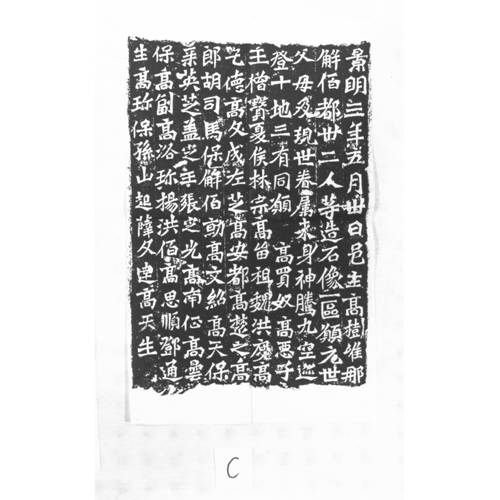 景明三年五月卅日邑主高樹維那
解佰都卅二人等造石像一區願元世
父母及現世眷屬來身神騰九空迹
登十地三有同願 高買奴高惡子
王僧寶夏侯林宗高留祖魏洪度高
乞德高文成左芝高安都高楚之高
郎胡司馬保解佰勍高文紹高天保
英芝蓋芝年張芝光高南征高曇
保高副高洛珍楊洪佰高思順鄧通
生高珍保孫山起薛文達高天生
C